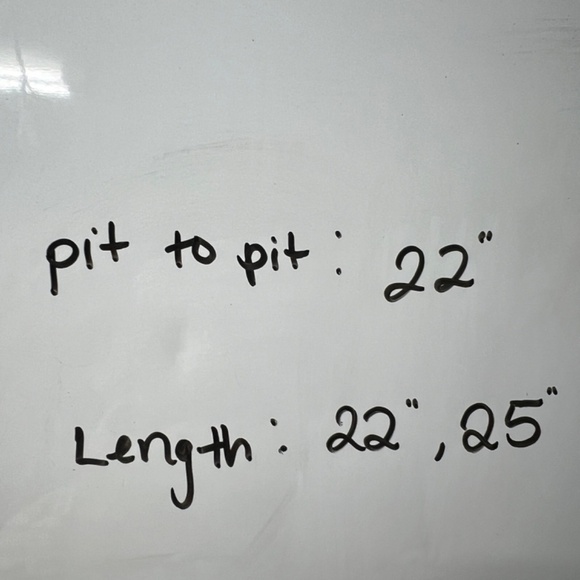 pit to pit: 22"
Length: 22", 25"